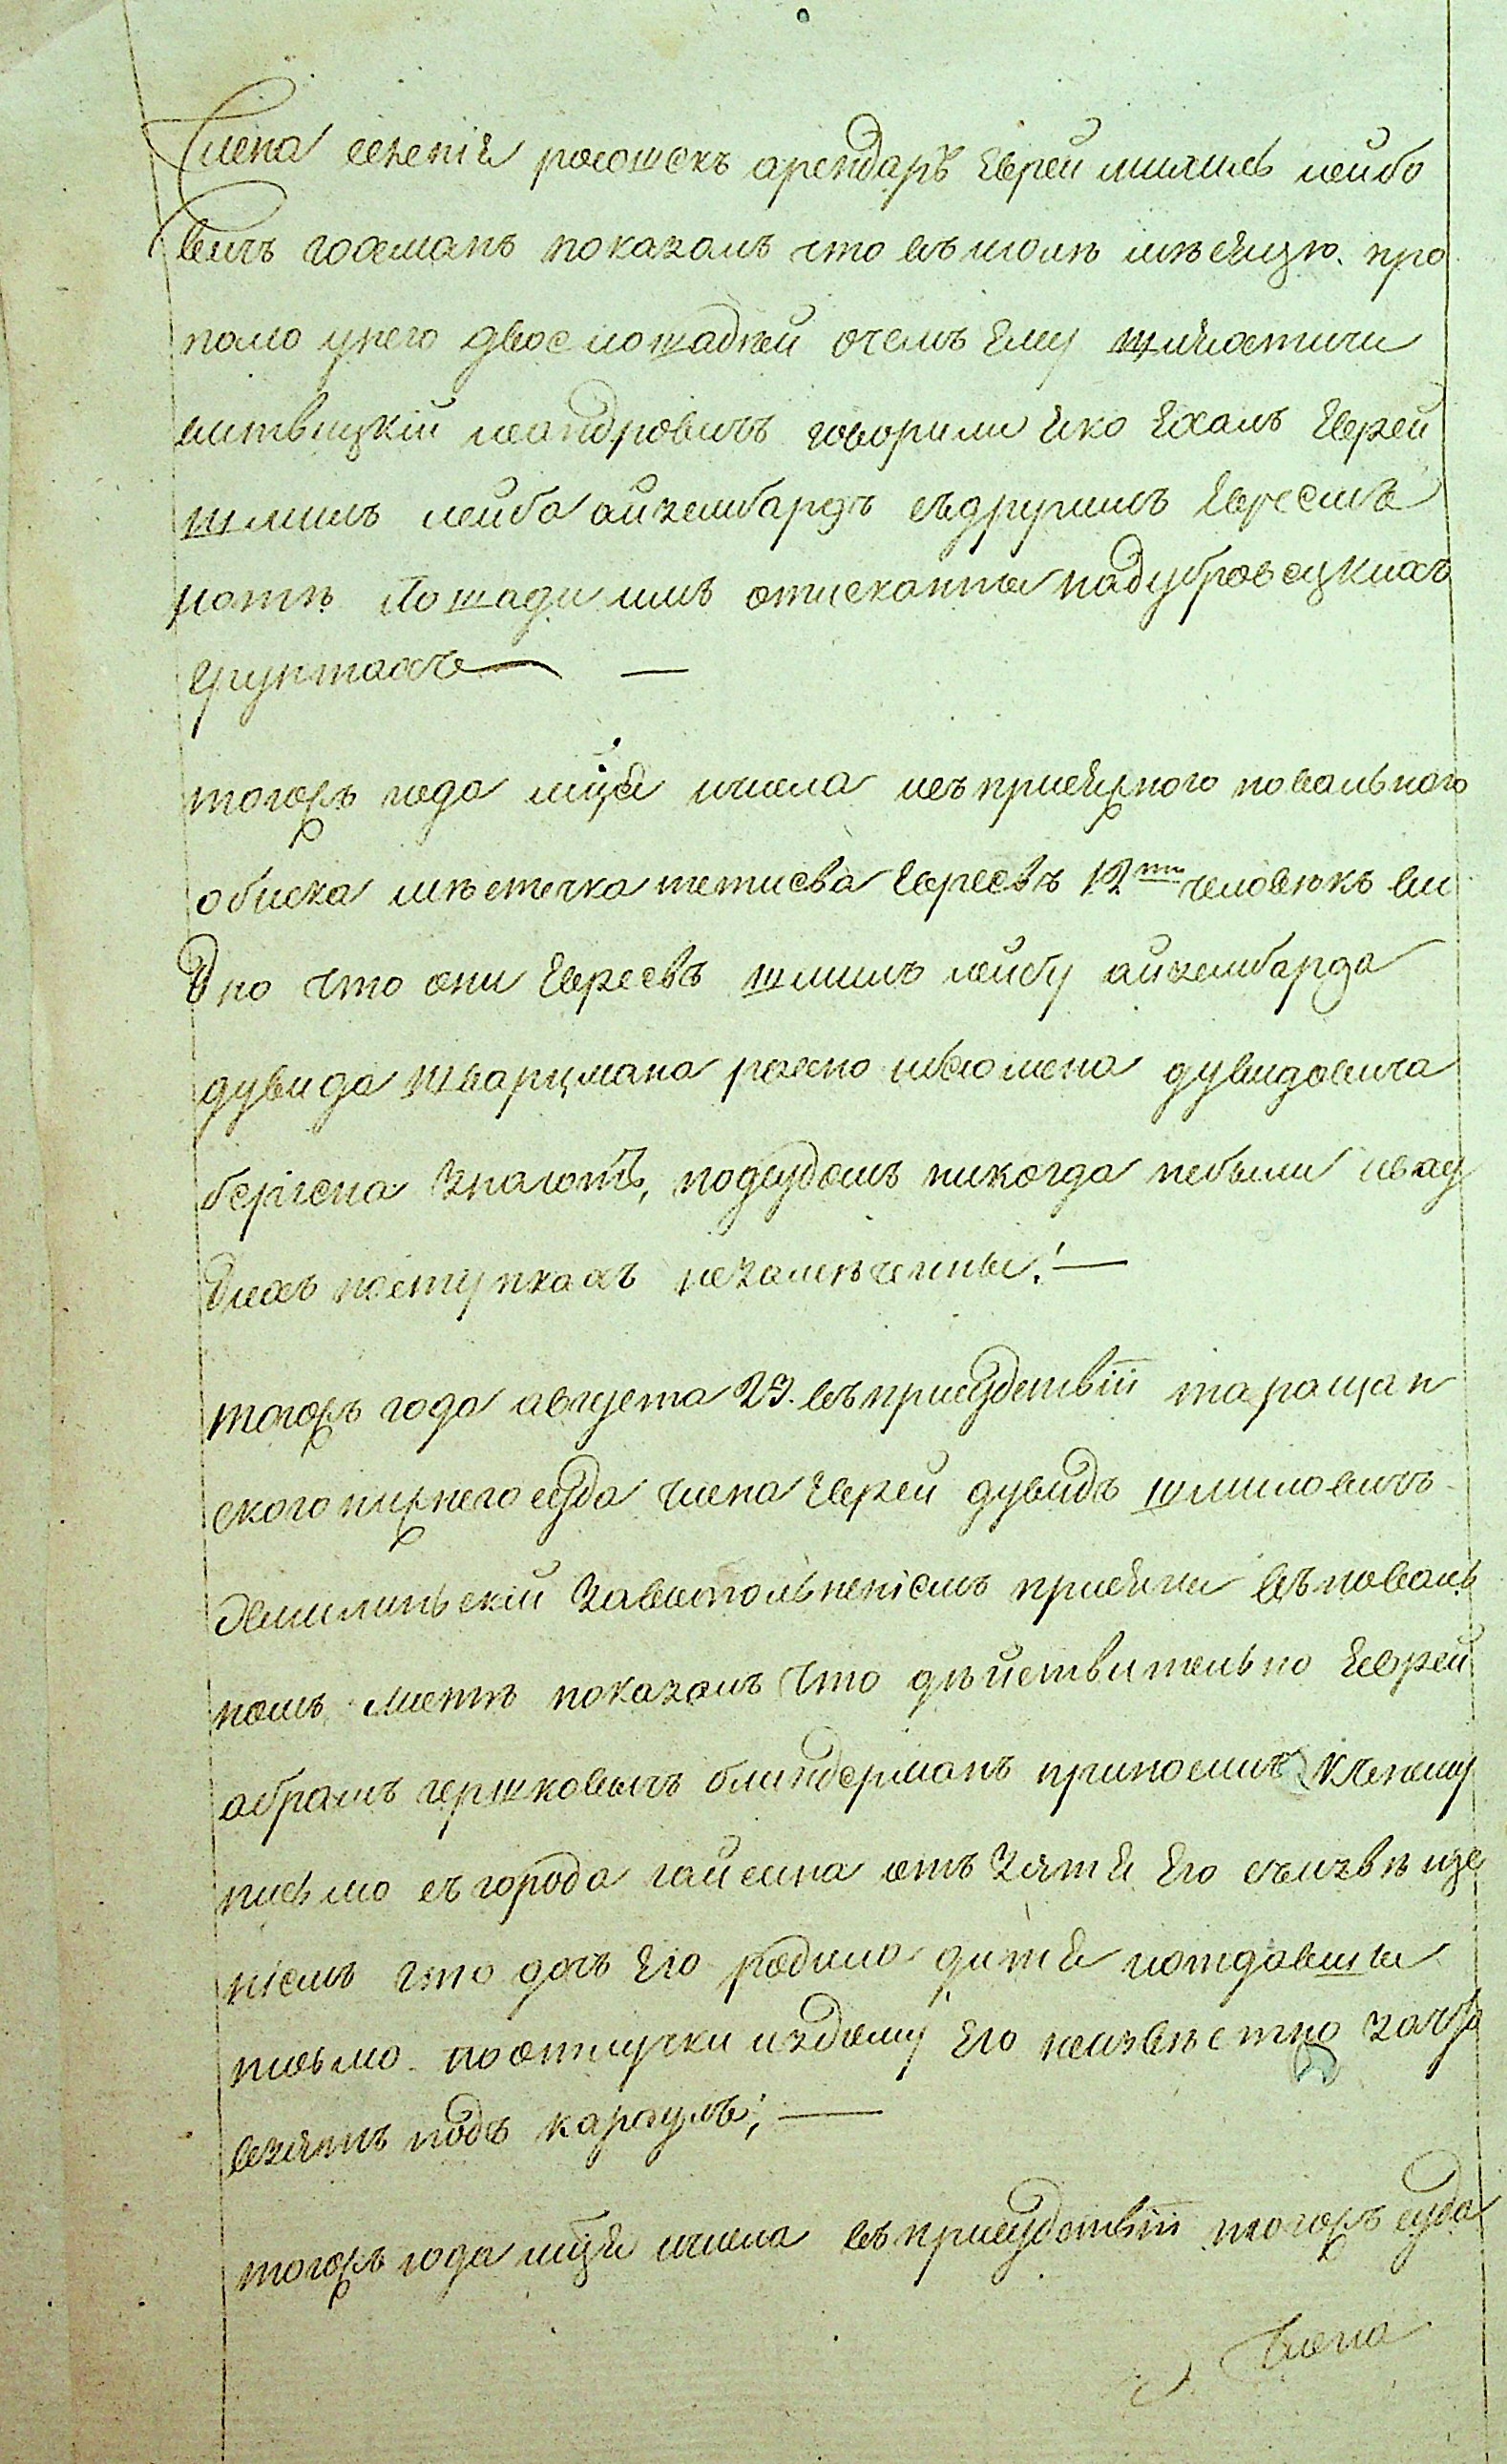 Члена селенія росошекъ арендаръ Еврей мижмлъ лейбо
вичъ гохманъ показалъ что въ июлѣ мѣсяцѣ. про
пало унего двое лошадѣй очемъ Ему шляхтичи
витвицкій леандровичъ говорили яко Ехалъ Еврей
шлимъ лейба айзембардъ съдругимъ Евреемъ
нотѣ Лошади имъ отисканны надубровецкихъ
грунтахъ —
тогожъ года мца ичисла изъ присяжного повального
обиска мѣстечка тетиева Евреевъ 12ти человѣкъ ви
дно что они Евреевъ шлимъ лейбу айзембарда
дувида шварцмана равно ишломена дувидовича
бергена знаютъ, подсудомъ никогда небыли ивху
дихъ поступкахъ незамѣченны. —
тогожъ года августа 23. въприсудствіи таращан
ского нижнего суда члена Еврей дувидъ шлимовичъ
хмилинскій завиполъненіемъ присяги въповаль
номъ листѣ показалъ что дѣйствительно Еврей
абрамъ гершковичъ блиндерманъ приносилъ кЧлену
письмо съгорода гайсина отъ зятя Его съизвѣще
ніемъ что дочъ Его родила дитя иотдавши
письмо поотлучки издому Его неизвѣстно зачто
взятъ подъ караулъ; —
тогожъ года мця ичисла въприсудствіи тогожъ суда
Члена